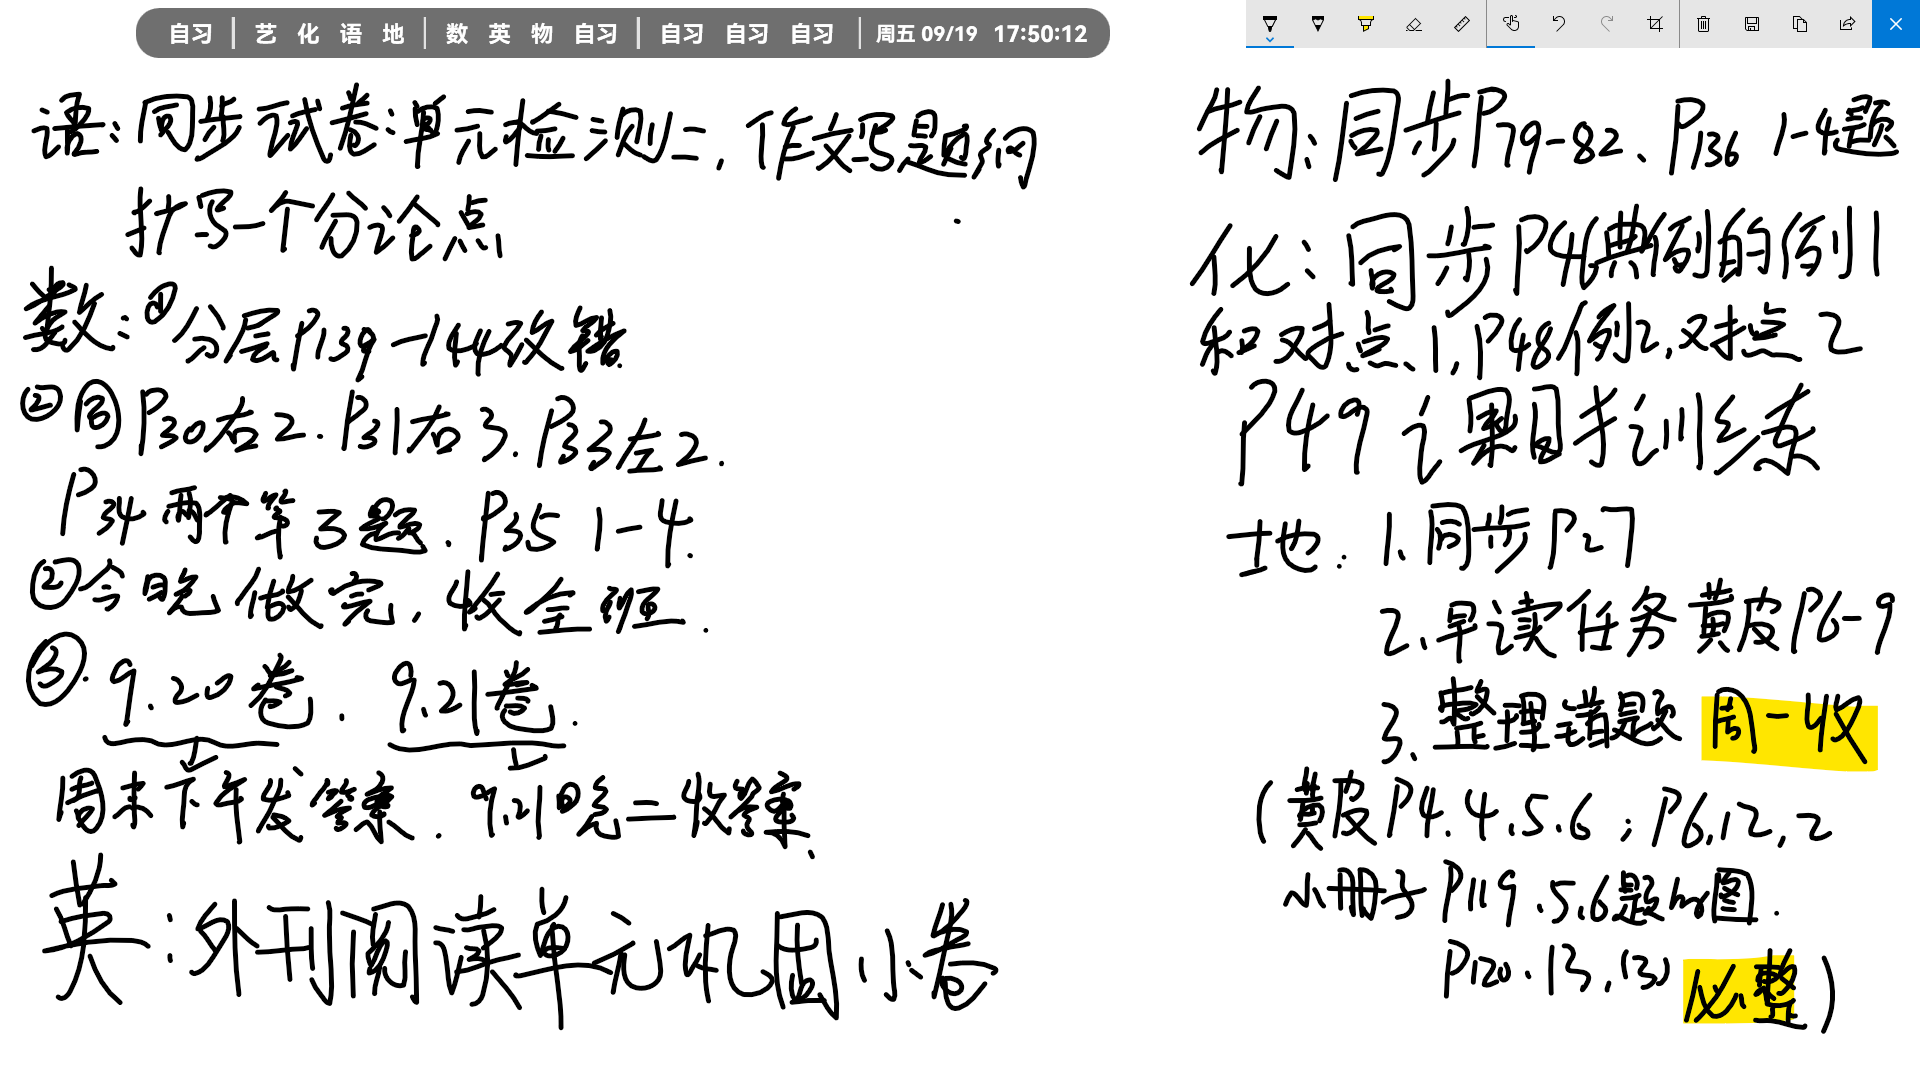 自习 | 艺 化 语 地 | 数 英 物 自习 | 自习 自习 自习 | 周五 09/19 17:50:12
语:同步试卷:单元检测二,作文写题纲
抄写一个分论点
数:①分层P139-144改错
②同P30右2.P31右3.P33左2.
P34两个第3题.P35 1-4.
②今晚做完,收全班.
③.9.20卷.9.21卷.
周末下午发答案.9.21日晚二收答案.
英:外刊阅读单元巩固小卷
物:同步P79-82、P136 1-4题
化:同步P46典例的例1
和对点、1,P48例2,对点2
P49 课时训练
地:1、同步P27
2、早读任务黄皮P6-9
3、整理错题 周一收
(黄皮P4.4.5.6;P6,12,2
小册子P119.5.6题hr图.
P120.13,(3)必整)